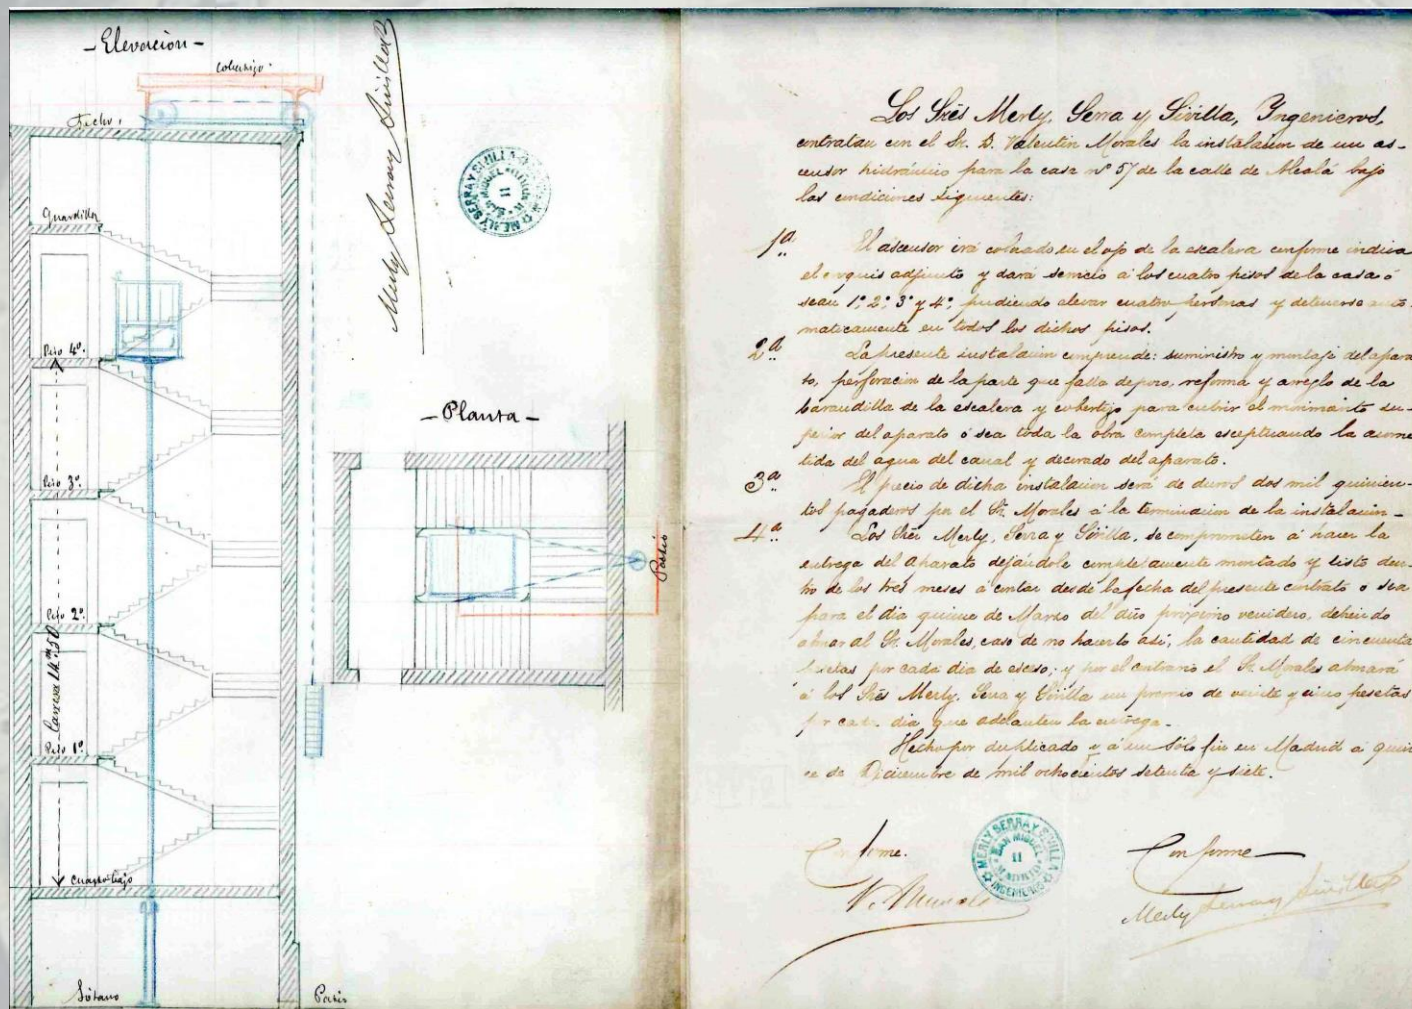 - Elevación -
cobertizo.
Techo.
Guardilla
Piso 4º.
Piso 3º.
Piso 2º.
Carrera 14m,50
Piso 1º.
Cuarto bajo
Sótano
Patio
Merly Serra y Sivilla
MERLY SERRA Y SIVILLA
INGENIEROS
SAN MIGUEL
11
MADRID
- Planta -
Patio
Los Sres Merly, Serra y Sivilla, Yngenieros,
contratan con el Sr. D. Valentin Morales la instalacion de un as-
censor hidráulico para la casa nº 57 de la calle de Alcalá bajo
las condiciones siguientes:
1ª El ascensor irá colocado en el ojo de la escalera conforme indica
el croquis adjunto y dará servicio á los cuatro pisos de la casa ó
sean 1º, 2º, 3º y 4º, pudiendo elevar cuatro personas y detenerse auto-
maticamente en todos los dichos pisos.
2ª La presente instalacion comprende: suministro y montaje del apara-
to, perforacion de la parte que falta de pozo, reforma y arreglo de la
barandilla de la escalera y cobertizo para cubrir el movimiento su-
perior del aparato ó sea toda la obra completa esceptuando la acome-
tida del agua del canal y decorado del aparato.
3ª El precio de dicha instalacion será de duros dos mil quinien-
tos pagaderos por el Sr. Morales á la terminacion de la instalacion-
4ª Los Sres Merly, Serra y Sivilla, se comprometen á hacer la
entrega del aparato dejándole completamente montado y listo den-
tro de los tres meses á contar desde la fecha del presente contrato ó sea
para el dia quince de Marzo del año próximo venidero, debiendo
abonar al Sr. Morales, caso de no hacerlo así, la cantidad de cincuenta
pesetas por cada dia de esceso; y por el contrario el Sr. Morales abonará
á los Sres Merly, Serra y Sivilla un premio de veinte y cinco pesetas
por cada dia que adelanten la entrega.
Hecho por duplicado y á un sólo fin en Madrid á quin-
ce de Diciembre de mil ochocientos setenta y siete.
Conforme.
V. Morales
MERLY SERRA Y SIVILLA
INGENIEROS
SAN MIGUEL
11
MADRID
Conforme
Merly Serra y Sivilla